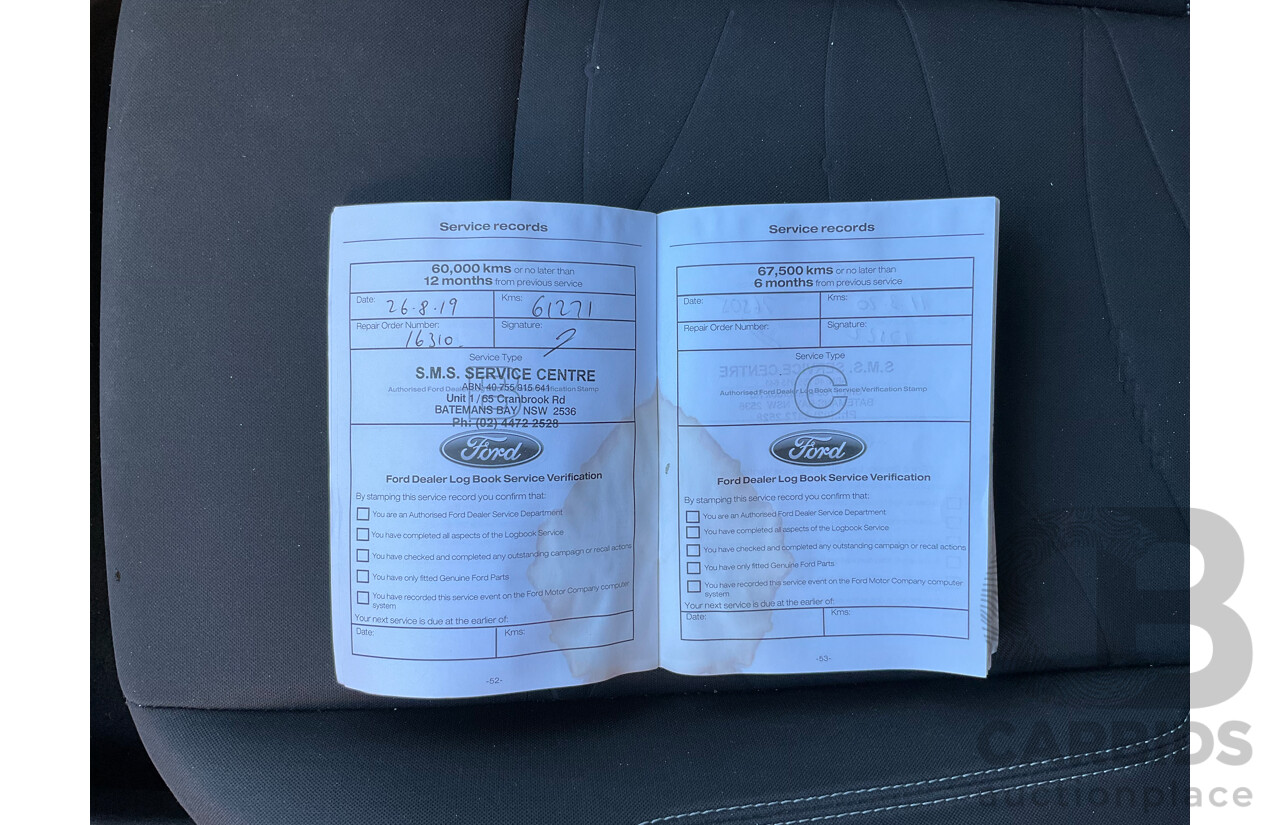 Service records
60,000 kms or no later than
12 months from previous service
Date: 26.8.19 Kms: 61271
Repair Order Number: 16310 Signature:
Service Type
S.M.S. SERVICE CENTRE
ABN: 40 755 315 641
Unit 1/65 Cranbrook Rd
BATEMANS BAY NSW 2536
Ph: (02) 4472 2528
Ford
Ford Dealer Log Book Service Verification
By stamping this service record you confirm that:
You are an Authorised Ford Dealer Service Department
You have completed all aspects of the Logbook Service
You have checked and completed any outstanding campaign or recall actions
You have only fitted Genuine Ford Parts
You have recorded this service event on the Ford Motor Company computer
system
Your next service is due at the earlier of:
Date: Kms:
-52-
Service records
67,500 kms or no later than
6 months from previous service
Date: Kms:
Repair Order Number: Signature:
Service Type
C
Authorised Ford Dealer Log Book Service Verification Stamp
Ford
Ford Dealer Log Book Service Verification
By stamping this service record you confirm that:
You are an Authorised Ford Dealer Service Department
You have completed all aspects of the Logbook Service
You have checked and completed any outstanding campaign or recall actions
You have only fitted Genuine Ford Parts
You have recorded this service event on the Ford Motor Company computer
system
Your next service is due at the earlier of:
Date: Kms:
-53-
B
CARBIDS
auctionplace